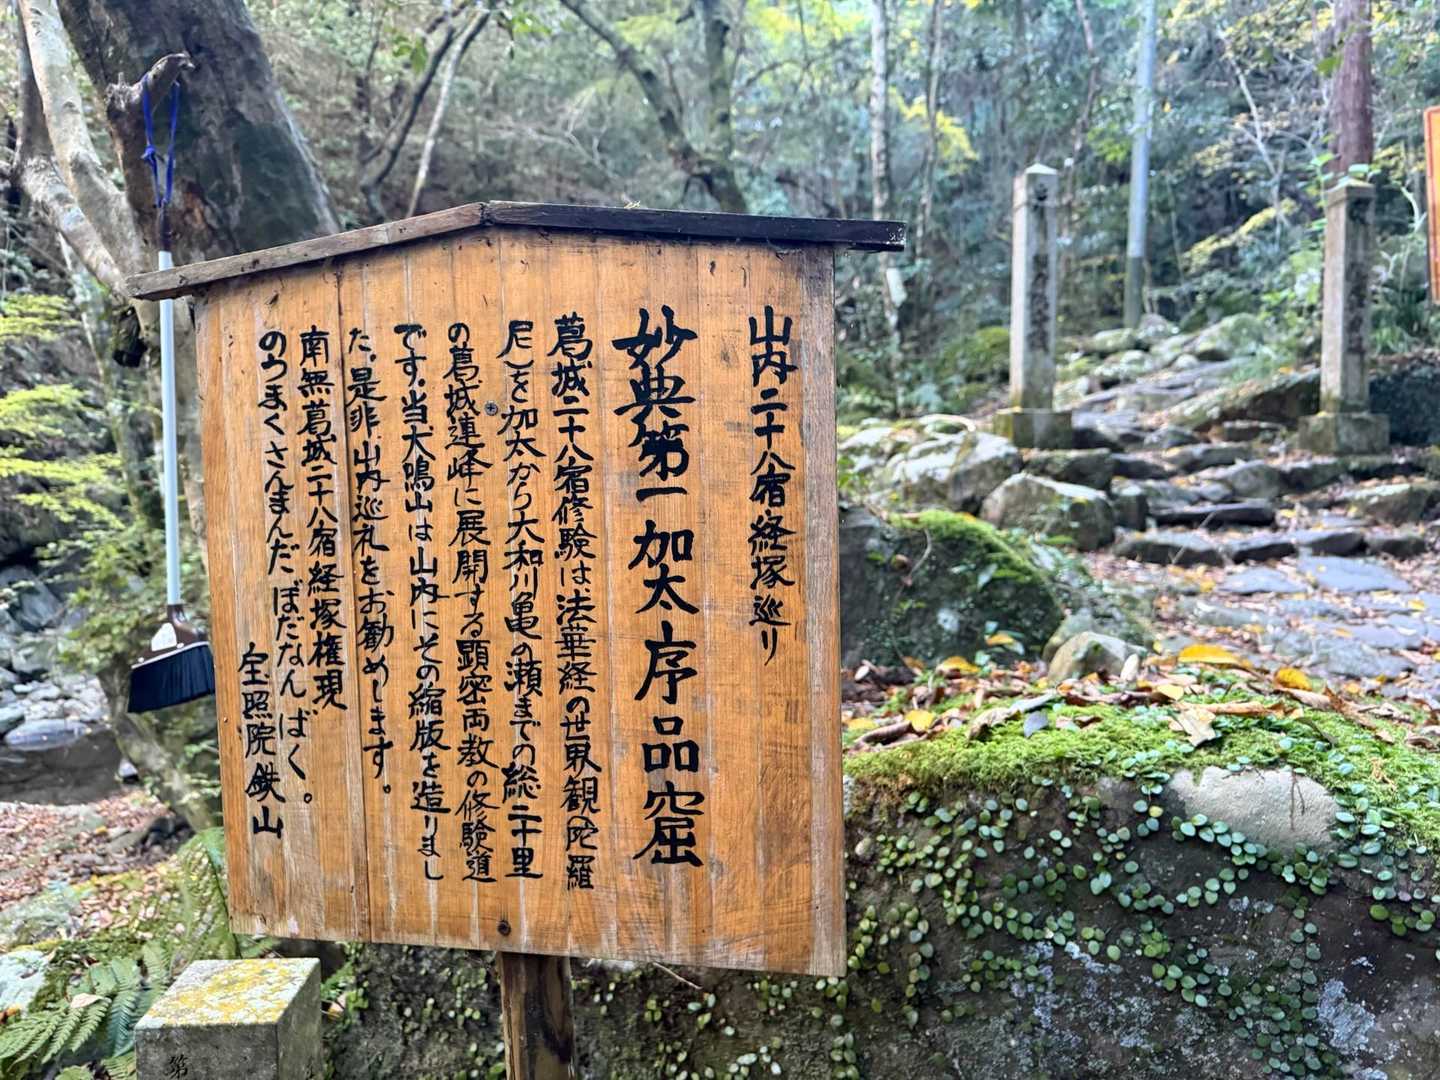 山内二十八宿経塚巡り
妙典第一加太序品窟
葛城二十八宿修験は法華経の世界観(陀羅
尼)を加太から大和川亀の瀬までの総二十里
の葛城連峰に展開する顕密両教の修験道
です。当犬鳴山は山内にその縮版を造りまし
た。是非山内巡礼をお勧めします。
南無葛城二十八宿経塚権現
のうまくさんまんだ ぼだなんばく。
宝照院鉄山
第